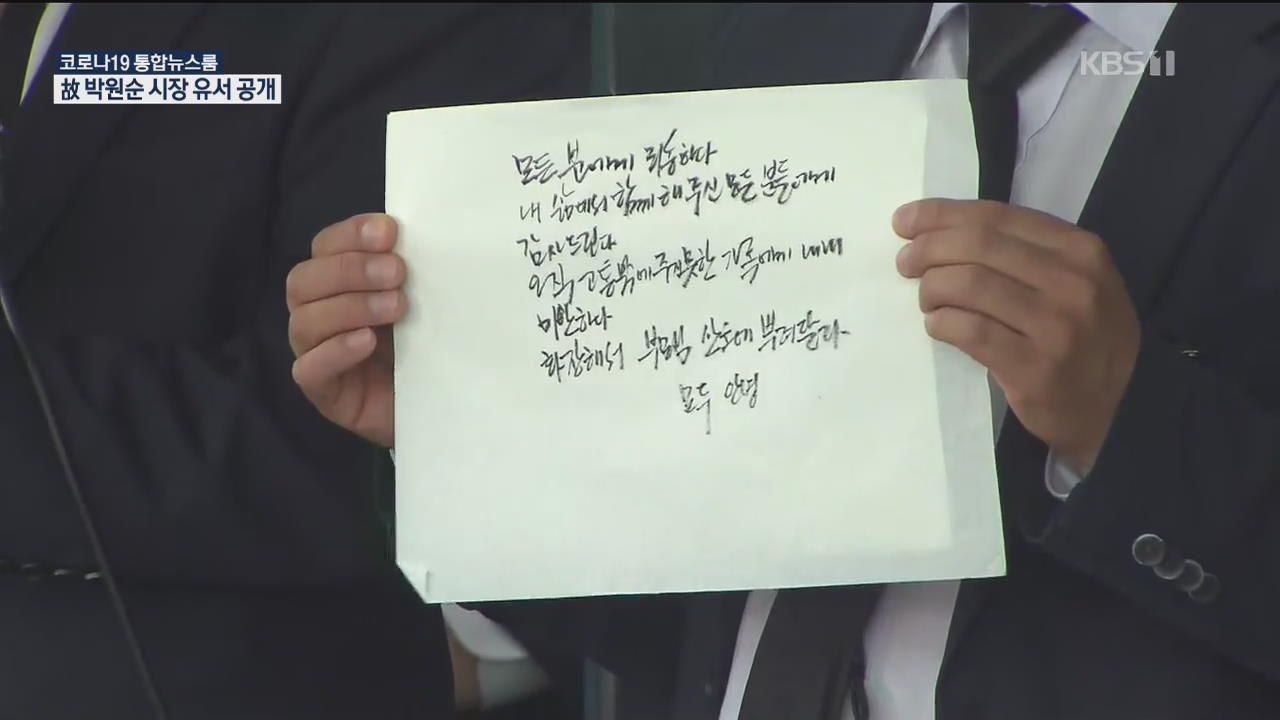 코로나19 통합뉴스룸
故 박원순 시장 유서 공개
KBS 1
모든 분에게 죄송하다
내 삶에서 함께 해 주신 모든 분들에게
감사드린다
오직 고통밖에 주지 못한 가족에게 내내
미안하다
화장해서 부모님 산소에 뿌려달라
모두 안녕